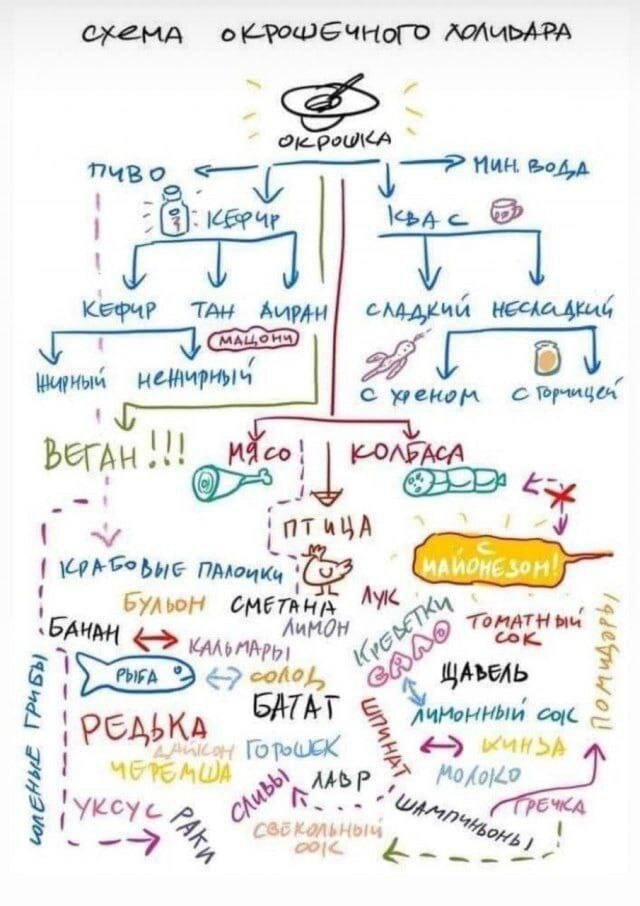 СХЕМА ОКРОШЕЧНОГО ХОЛИВАРА
ОКРОШКА
ПИВО
МИН. ВОДА
КЕФИР
КВАС
КЕФИР
ТАН
АИРАН
СЛАДКИЙ
НЕСЛАДКИЙ
МАЦОНИ
ЖИРНЫЙ
НЕЖИРНЫЙ
С ХРЕНОМ
С ГОРЧИЦЕЙ
ВЕГАН!!!
МЯСО
КОЛБАСА
ПТИЦА
С
МАЙОНЕЗОМ!
КРАБОВЫЕ ПАЛОЧКИ
БУЛЬОН
СМЕТАНА
ЛУК
КРЕВЕТКИ
ТОМАТНЫЙ
СОК
БАНАН
КАЛЬМАРЫ
ЛИМОН
САЛО
ПОМИДОРЫ
РЫБА
СОЛОД
ЩАВЕЛЬ
СОЛЕНЫЕ ГРИБЫ
БАТАТ
РЕДЬКА
ШПИНАТ
ЛИМОННЫЙ СОК
ДАЙКОН
ГОРОШЕК
КИНЗА
ЧЕРЕМША
ЛАВР
МОЛОКО
УКСУС
РАКИ
СЛИВЫ
ШАМПИНЬОНЫ
ГРЕЧКА
СВЕКОЛЬНЫЙ
СОК